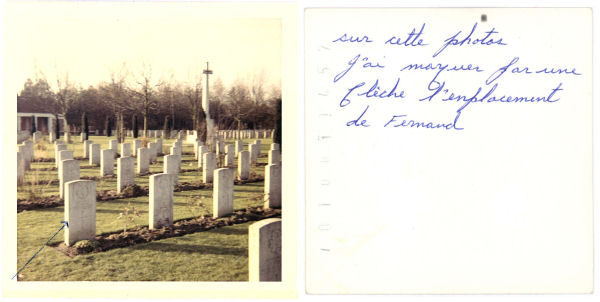 sur cette photos
J'ai marquer par une
flèche l'emplacement
de Fernand